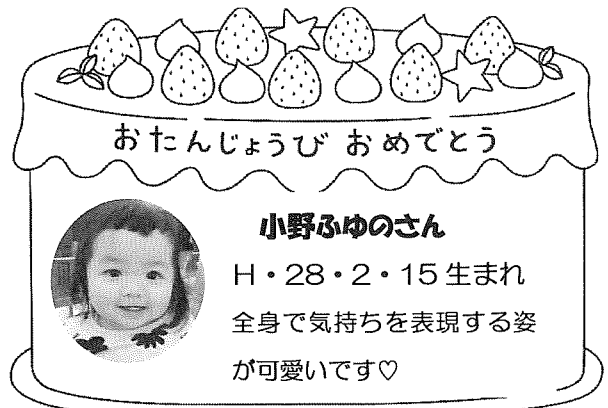 おたんじょうび おめでとう
小野ふゆのさん
H・28・2・15生まれ
全身で気持ちを表現する姿
が可愛いです♡